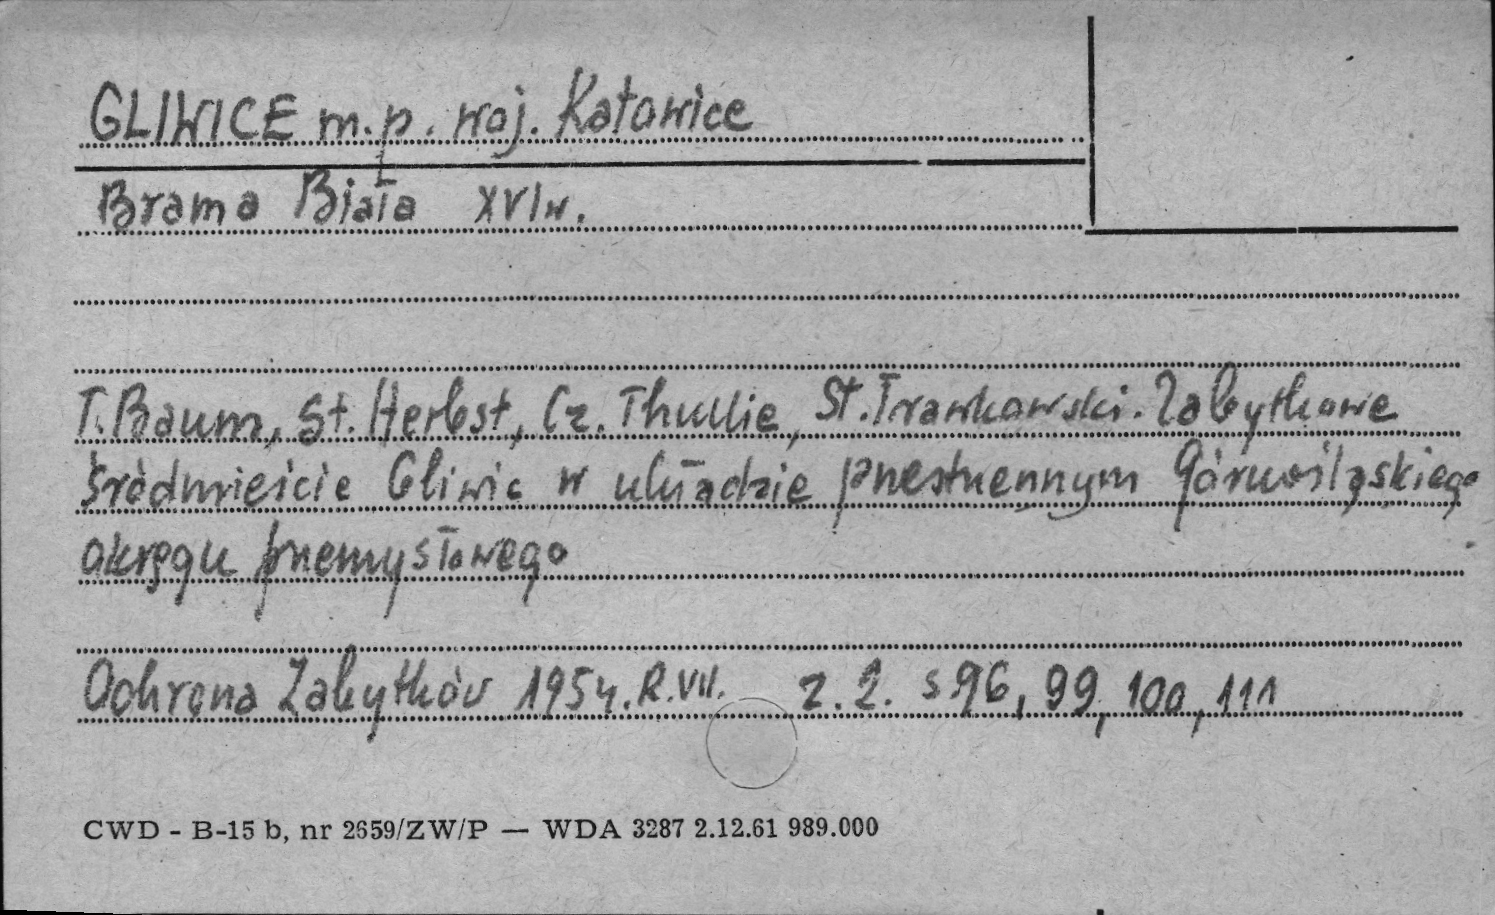 GLIWICE m.p. woj. Katowice
Brama Biała XVI w.
T. Baum, St. Herbst, Cz. Thullie, St. Trawkowski. Zabytkowe
śródmieście Gliwic w układzie przestrzennym Górnośląskiego
okręgu przemysłowego
Ochrona Zabytków 1954. R. VII. z. 2. s 96, 99, 100, 111
CWD - B-15 b, nr 2659/ZW/P — WDA 3287 2.12.61 989.000